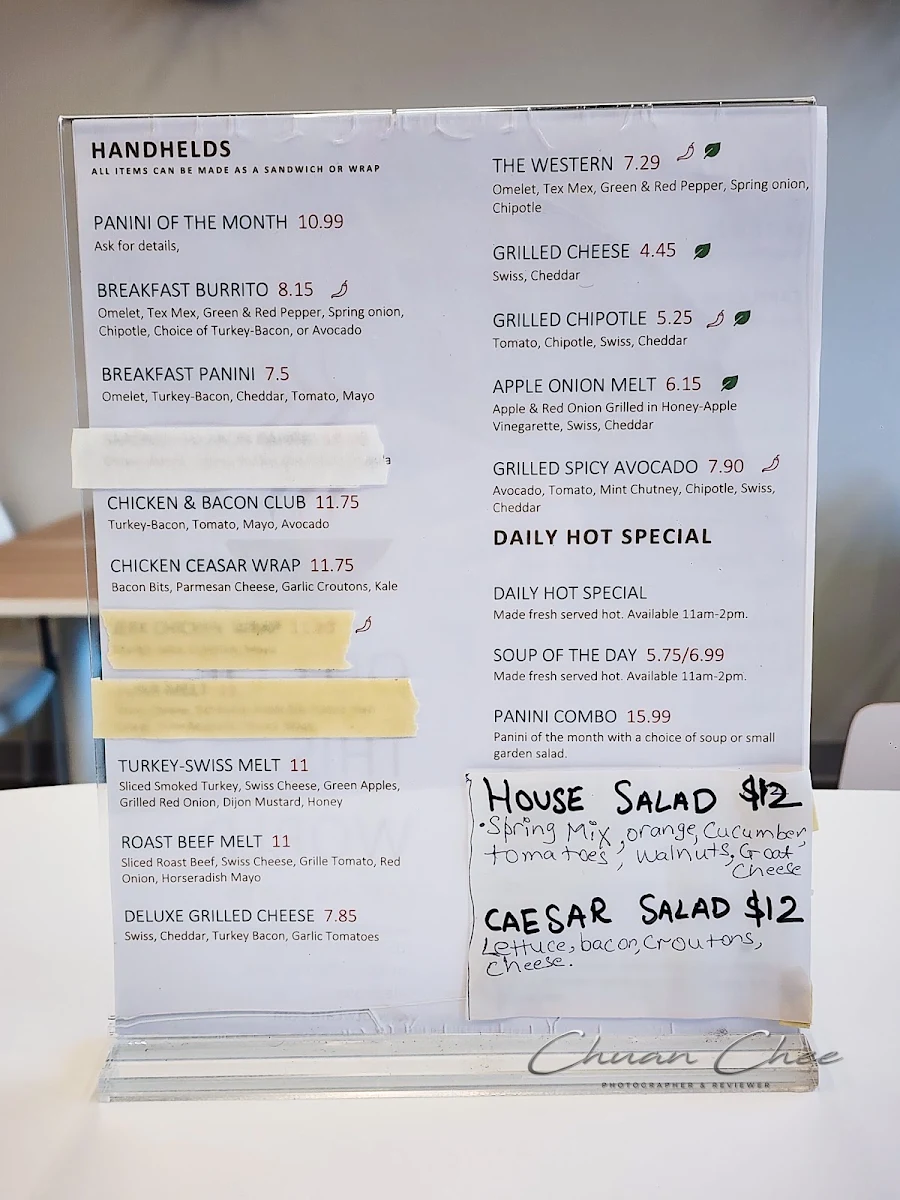 HANDHELDS
ALL ITEMS CAN BE MADE AS A SANDWICH OR WRAP
PANINI OF THE MONTH 10.99
Ask for details,
BREAKFAST BURRITO 8.15
Omelet, Tex Mex, Green & Red Pepper, Spring onion,
Chipotle, Choice of Turkey-Bacon, or Avocado
BREAKFAST PANINI 7.5
Omelet, Turkey-Bacon, Cheddar, Tomato, Mayo
CHICKEN & BACON CLUB 11.75
Turkey-Bacon, Tomato, Mayo, Avocado
CHICKEN CEASAR WRAP 11.75
Bacon Bits, Parmesan Cheese, Garlic Croutons, Kale
JERK CHICKEN WRAP
TURKEY-SWISS MELT 11
Sliced Smoked Turkey, Swiss Cheese, Green Apples,
Grilled Red Onion, Dijon Mustard, Honey
ROAST BEEF MELT 11
Sliced Roast Beef, Swiss Cheese, Grille Tomato, Red
Onion, Horseradish Mayo
DELUXE GRILLED CHEESE 7.85
Swiss, Cheddar, Turkey Bacon, Garlic Tomatoes
THE WESTERN 7.29
Omelet, Tex Mex, Green & Red Pepper, Spring onion,
Chipotle
GRILLED CHEESE 4.45
Swiss, Cheddar
GRILLED CHIPOTLE 5.25
Tomato, Chipotle, Swiss, Cheddar
APPLE ONION MELT 6.15
Apple & Red Onion Grilled in Honey-Apple
Vinegarette, Swiss, Cheddar
GRILLED SPICY AVOCADO 7.90
Avocado, Tomato, Mint Chutney, Chipotle, Swiss,
Cheddar
DAILY HOT SPECIAL
DAILY HOT SPECIAL
Made fresh served hot. Available 11am-2pm.
SOUP OF THE DAY 5.75/6.99
Made fresh served hot. Available 11am-2pm.
PANINI COMBO 15.99
Panini of the month with a choice of soup or small
garden salad.
HOUSE SALAD $12
•Spring Mix, orange, Cucumber,
tomatoes, walnuts, Goat
Cheese
CAESAR SALAD $12
Lettuce, bacon, Croutons,
Cheese.
Chuan Chee
PHOTOGRAPHER & REVIEWER